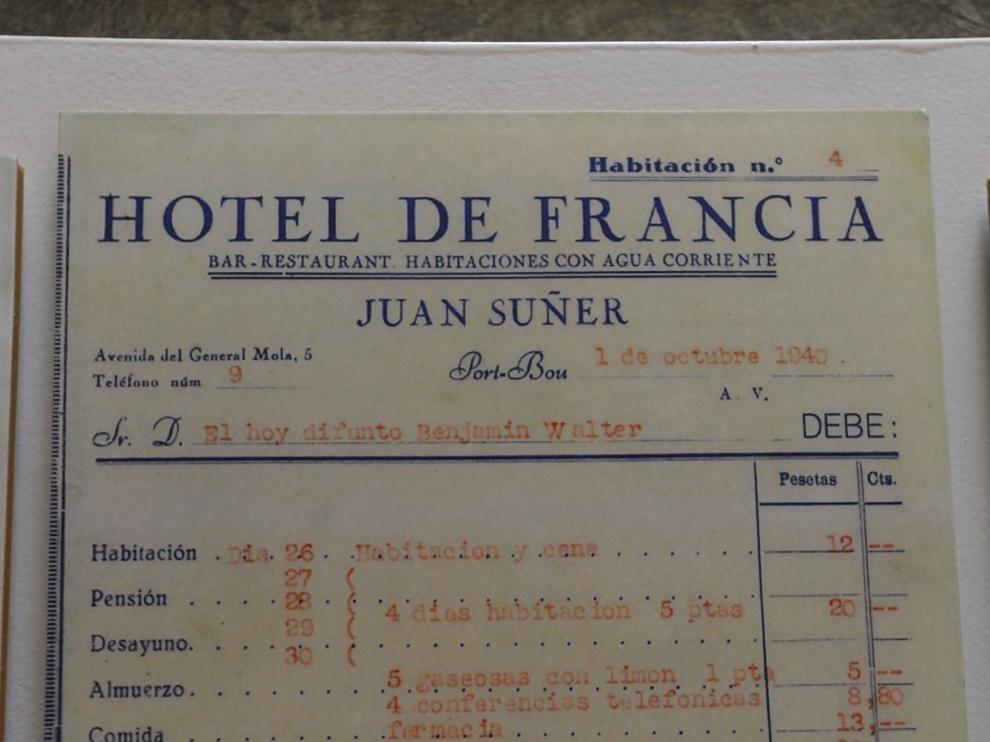 Habitación n.° 4
HOTEL DE FRANCIA
BAR-RESTAURANT. HABITACIONES CON AGUA CORRIENTE
JUAN SUÑER
Avenida del General Mola, 5
Teléfono núm 9
Port-Bou 1 de octubre 1940.
A. V.
Sr. D. El hoy difunto Benjamin Walter DEBE:
Pesetas Cts.
Habitación . Dia 26 . Habitacion y cena 12 --
27 (
Pensión 28 ( 4 dias habitacion 5 ptas 20 --
29 (
Desayuno.
30 (
5 gaseosas con limon 1 pta 5 --
Almuerzo.
4 conferencias telefonicas 8,80
Comida farmacia 13,--